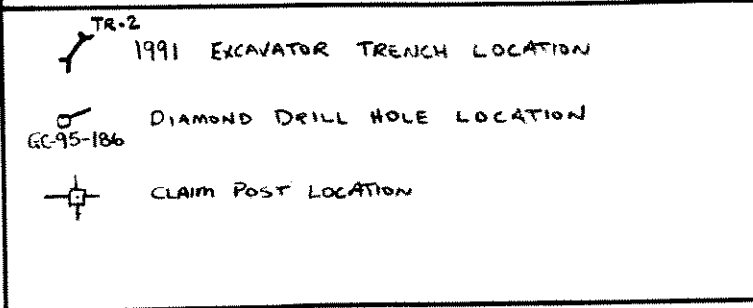 TR-2
1991 EXCAVATOR TRENCH LOCATION
DIAMOND DRILL HOLE LOCATION
GC-95-186
CLAIM POST LOCATION